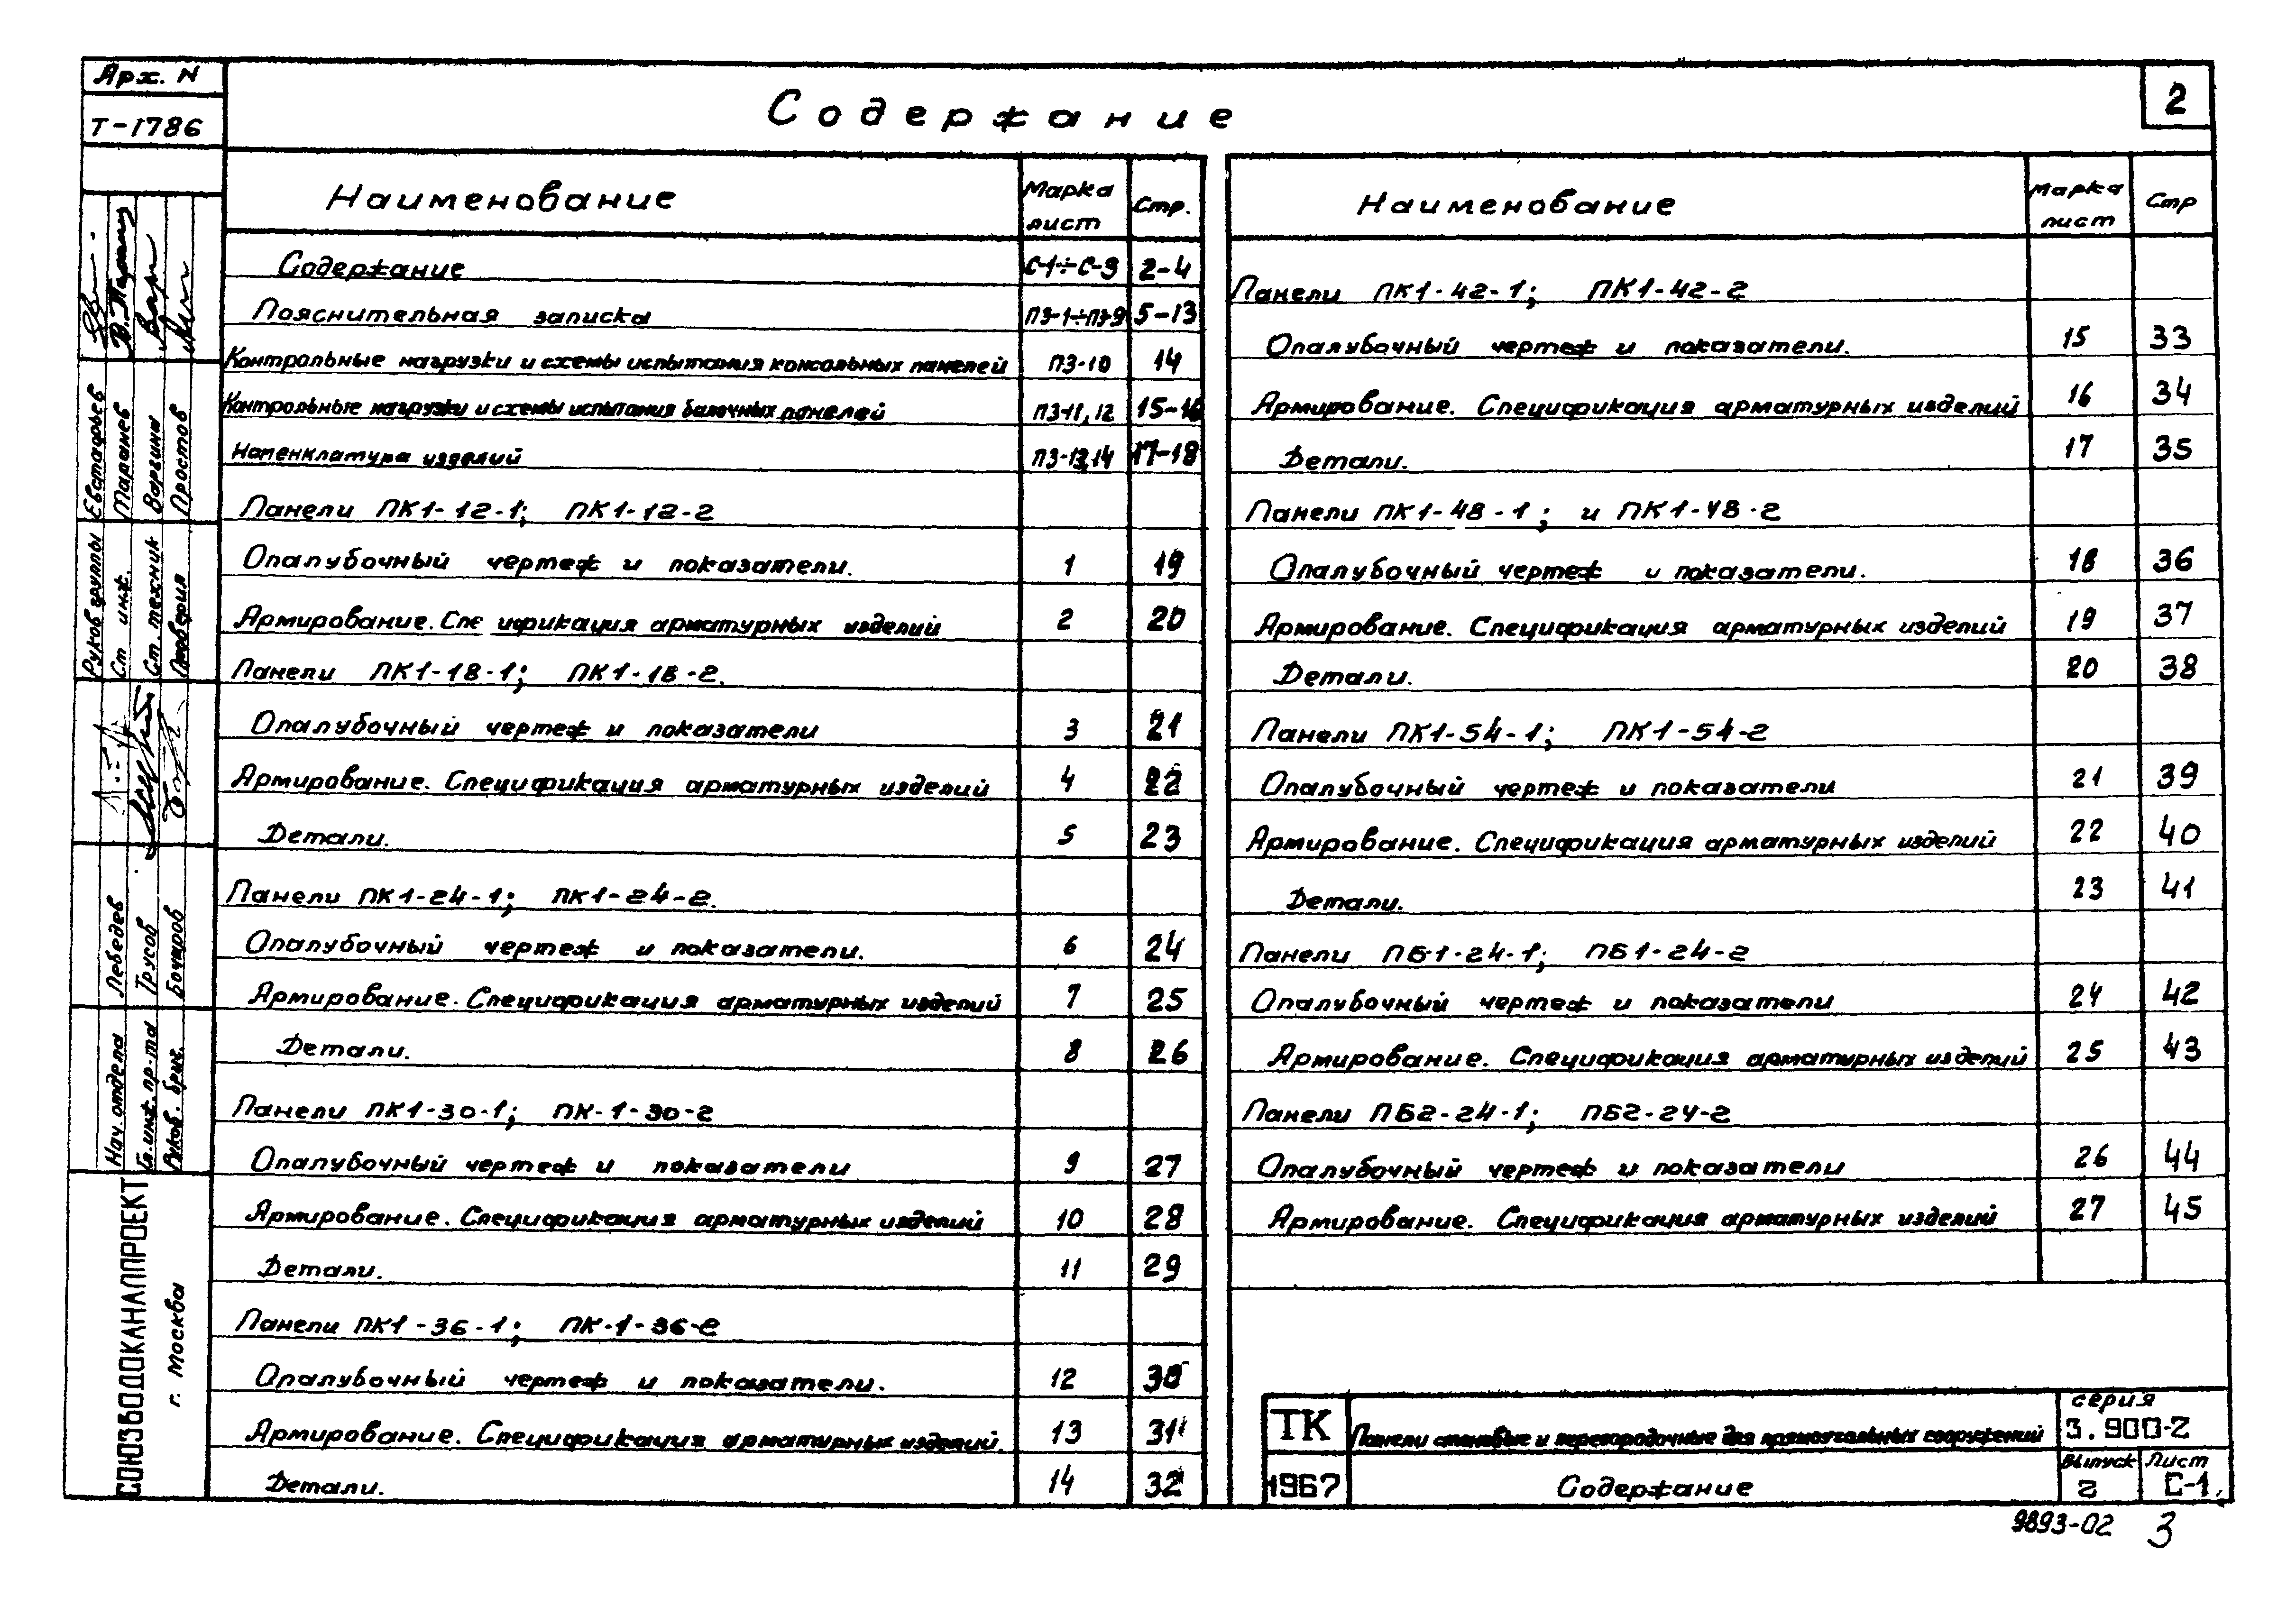 Арх. N
Т-1786
Содержание
2
Наименование
Марка лист
Стр.
Содержание С-1÷С-3 2-4
Пояснительная записка ПЗ-1÷ПЗ-9 5-13
Контрольные нагрузки и схемы испытания консольных панелей ПЗ-10 14
Контрольные нагрузки и схемы испытания балочных панелей ПЗ-11,12 15-16
Номенклатура изделий ПЗ-13,14 17-18
Панели ПК1-12-1; ПК1-12-2
Опалубочный чертеж и показатели. 1 19
Армирование. Спе ификация арматурных изделий 2 20
Панели ПК1-18-1; ПК1-18-2.
Опалубочный чертеж и показатели 3 21
Армирование. Спецификация арматурных изделий 4 22
Детали. 5 23
Панели ПК1-24-1; ПК1-24-2.
Опалубочный чертеж и показатели. 6 24
Армирование. Спецификация арматурных изделий 7 25
Детали. 8 26
Панели ПК1-30-1; ПК-1-30-2
Опалубочный чертеж и показатели 9 27
Армирование. Спецификация арматурных изделий 10 28
Детали. 11 29
Панели ПК1-36-1; ПК-1-36-2
Опалубочный чертеж и показатели. 12 30
Армирование. Спецификация арматурных изделий. 13 31
Детали. 14 32
Наименование
Марка лист
Стр
Панели ПК1-42-1; ПК1-42-2
Опалубочный чертеж и показатели. 15 33
Армирование. Спецификация арматурных изделий 16 34
Детали. 17 35
Панели ПК1-48-1; и ПК1-48-2
Опалубочный чертеж и показатели. 18 36
Армирование. Спецификация арматурных изделий 19 37
Детали. 20 38
Панели ПК1-54-1; ПК1-54-2
Опалубочный чертеж и показатели 21 39
Армирование. Спецификация арматурных изделий 22 40
Детали. 23 41
Панели ПБ1-24-1; ПБ1-24-2
Опалубочный чертеж и показатели 24 42
Армирование. Спецификация арматурных изделий 25 43
Панели ПБ2-24-1; ПБ2-24-2
Опалубочный чертеж и показатели 26 44
Армирование. Спецификация арматурных изделий 27 45
ТК
1967
Панели стеновые и перегородочные для прямоугольных сооружений
Содержание
серия
3.900-2
Выпуск
2
Лист
С-1
9893-02
3
Руков группы Евстафьев
Ст инж. Таранев
Ст. техник Варгина
Проверил Простов
Нач. отдела Лебедев
Гл. инж. пр-та Трусов
Руков. бриг. Бочаров
СОЮЗВОДОКАНАЛПРОЕКТ
г. Москва